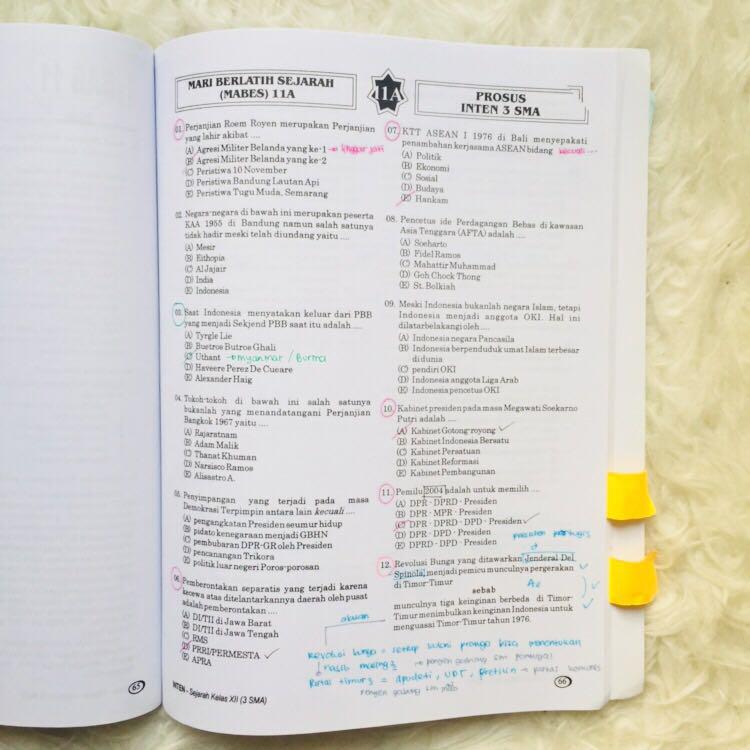 MARI BERLATIH SEJARAH
(MABES) 11A
11A
PROSUS
INTEN 3 SMA
01. Perjanjian Roem Royen merupakan Perjanjian
yang lahir akibat ....
(A) Agresi Militer Belanda yang ke-1 → linggar jati
(B) Agresi Militer Belanda yang ke-2
(C) Peristiwa 10 November
(D) Peristiwa Bandung Lautan Api
(E) Peristiwa Tugu Muda, Semarang
02. Negara-negara di bawah ini merupakan peserta
KAA 1955 di Bandung namun salah satunya
tidak hadir meski telah diundang yaitu ....
(A) Mesir
(B) Eithopia
(C) Al Jajair
(D) India
(E) Indonesia
03. Saat Indonesia menyatakan keluar dari PBB
yang menjadi Sekjend PBB saat itu adalah ....
(A) Tyrgle Lie
(B) Buetros Butros Ghali
(C) Uthant → myanmar / Burma
(D) Haveere Perez De Cueare
(E) Alexander Haig
04. Tokoh-tokoh di bawah ini salah satunya
bukanlah yang menandatangani Perjanjian
Bangkok 1967 yaitu ....
(A) Rajaratnam
(B) Adam Malik
(C) Thanat Khuman
(D) Narsisco Ramos
(E) Alisastro A.
05. Penyimpangan yang terjadi pada masa
Demokrasi Terpimpin antara lain kecuali ....
(A) pengangkatan Presiden seumur hidup
(B) pidato kenegaraan menjadi GBHN
(C) pembubaran DPR-GR oleh Presiden
(D) pencanangan Trikora
(E) politik luar negeri Poros-porosan
06. Pemberontakan separatis yang terjadi karena
kecewa atas ditelantarkannya daerah oleh pusat
adalah pemberontakan ....
(A) DI/TII di Jawa Barat
(B) DI/TII di Jawa Tengah
(C) RMS
(D) PRRI/PERMESTA
(E) APRA
07. KTT ASEAN I 1976 di Bali menyepakati
penambahan kerjasama ASEAN bidang kecuali ....
(A) Politik
(B) Ekonomi
(C) Sosial
(D) Budaya
(E) Hankam
08. Pencetus ide Perdagangan Bebas di kawasan
Asia Tenggara (AFTA) adalah ....
(A) Soeharto
(B) Fidel Ramos
(C) Mahattir Muhammad
(D) Goh Chock Thong
(E) St. Bolkiah
09. Meski Indonesia bukanlah negara Islam, tetapi
Indonesia menjadi anggota OKI. Hal ini
dilatarbelakangi oleh ....
(A) Indonesia negara Pancasila
(B) Indonesia berpenduduk umat Islam terbesar
di dunia
(C) pendiri OKI
(D) Indonesia anggota Liga Arab
(E) Indonesia pencetus OKI
10. Kabinet presiden pada masa Megawati Soekarno
Putri adalah ....
(A) Kabinet Gotong-royong
(B) Kabinet Indonesia Bersatu
(C) Kabinet Persatuan
(D) Kabinet Reformasi
(E) Kabinet Pembangunan
11. Pemilu 2004 adalah untuk memilih ....
(A) DPR - DPRD - Presiden
(B) DPR - MPR - Presiden
(C) DPR - DPRD - DPD - Presiden
(D) DPR - DPD - Presiden
(E) DPRD - DPD - Presiden
presiden portugis
12. Revolusi Bunga yang ditawarkan Jenderal Del
Spinola menjadi pemicu munculnya pergerakan
di Timor-Timur
sebab
munculnya tiga keinginan berbeda di Timor-
Timur menimbulkan keinginan Indonesia untuk
menguasai Timor-Timur tahun 1976.
Revolusi bunga = setiap koloni bisa menentukan
nasib masing2
Partai timur2 = apodeti, UDT, fretilin → partai komunis
65
INTEN - Sejarah Kelas XII (3 SMA)
66